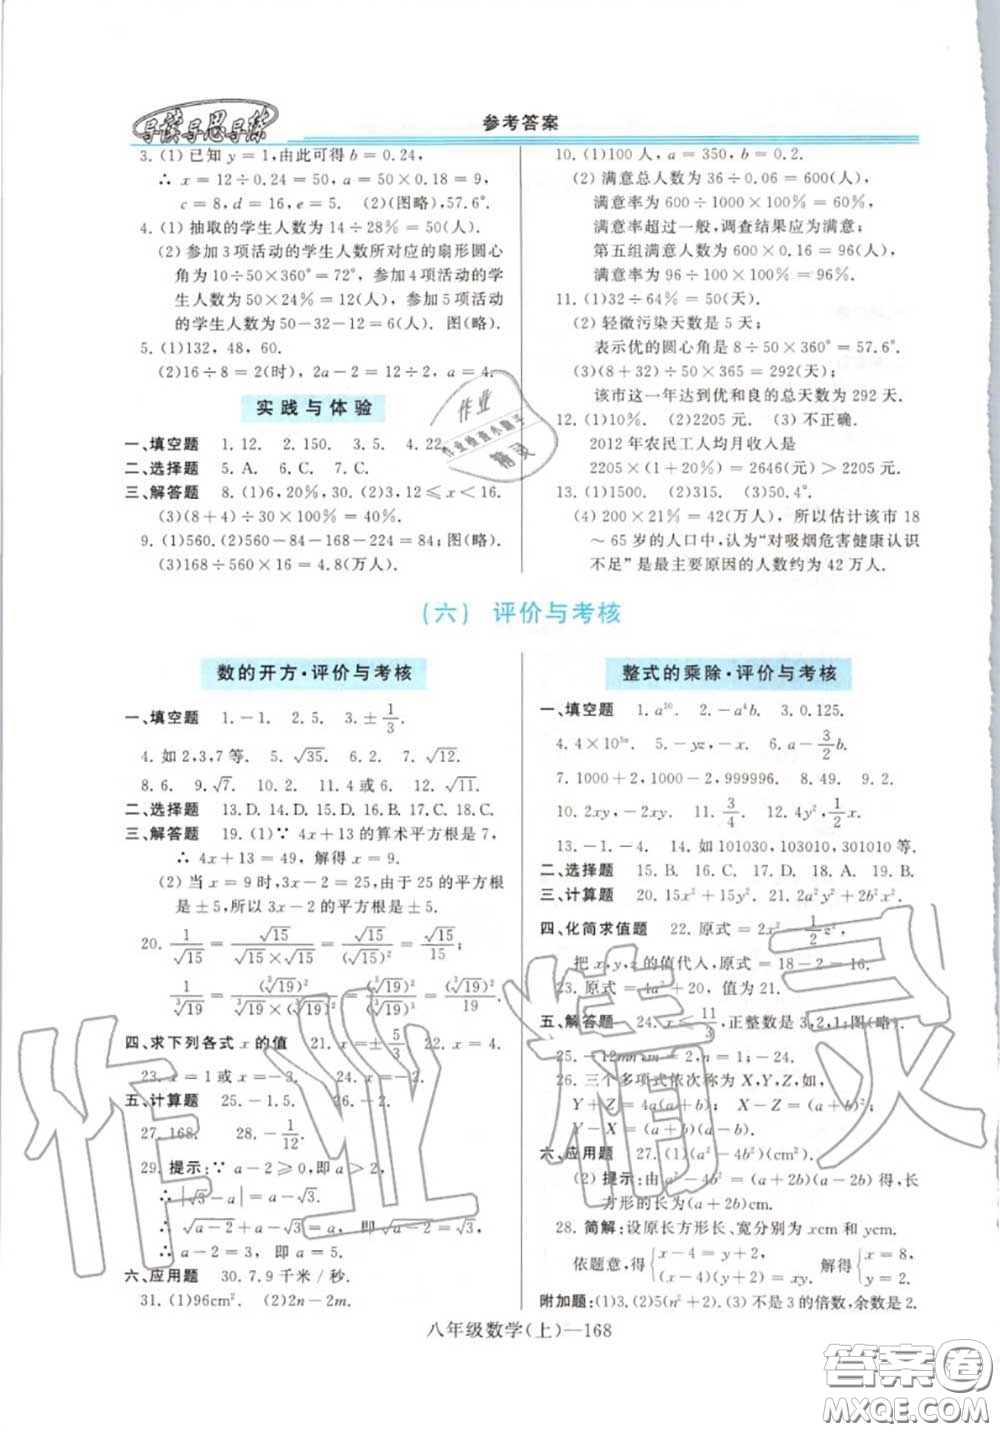 导读导思导练
参考答案
3. (1) 已知 y=1,由此可得 b=0.24,
∴ x=12÷0.24=50, a=50×0.18=9,
c=8, d=16, e=5. (2)(图略),57.6°.
4. (1) 抽取的学生人数为 14÷28%=50(人).
(2) 参加3项活动的学生人数所对应的扇形圆心
角为 10÷50×360°=72°, 参加4项活动的学
生人数为 50×24%=12(人), 参加5项活动
的学生人数为 50-32-12=6(人). 图(略).
5. (1)132, 48, 60.
(2)16÷8=2(时), 2a-2=12÷2, a=4.
实践与体验
一、填空题 1. 12. 2. 150. 3. 5. 4. 22.
二、选择题 5. A. 6. C. 7. C.
三、解答题 8. (1)6,20%,30. (2)3,12≤x<16.
(3)(8+4)÷30×100%=40%.
9. (1)560. (2)560-84-168-224=84;图(略).
(3)168÷560×16=4.8(万人).
10. (1)100人, a=350, b=0.2.
(2) 满意总人数为 36÷0.06=600(人),
满意率为 600÷1000×100%=60%.
满意率超过一般,调查结果应为满意;
第五组满意人数为 600×0.16=96(人),
满意率为 96÷100×100%=96%.
11. (1)32÷64%=50(天).
(2) 轻微污染天数是 5 天;
表示优的圆心角是 8÷50×360°=57.6°.
(3)(8+32)÷50×365=292(天);
该市这一年达到优和良的总天数为 292 天.
12. (1)10%. (2)2205元. (3)不正确.
2012年农民工人均月收入是
2205×(1+20%)=2646(元)>2205元.
13. (1)1500. (2)315. (3)50.4°.
(4) 200×21%=42(万人), 所以估计该市 18
～65岁的人口中,认为“对吸烟危害健康认识
不足”是最主要原因的人数约为 42 万人.
(六) 评价与考核
数的开方·评价与考核
一、填空题 1. -1. 2. 5. 3. ±1/3.
4. 如 2,3,7 等. 5. √35. 6. 2. 7. √12.
8. 6. 9. √7. 10. 2. 11. 4 或 6. 12. √11.
二、选择题 13. D. 14. D. 15. D. 16. B. 17. C. 18. C.
三、解答题 19. (1)∵ 4x+13 的算术平方根是 7,
∴ 4x+13=49, 解得 x=9.
(2) 当 x=9 时,3x-2=25,由于 25 的平方根
是 ±5,所以 3x-2 的平方根是 ±5.
20. 1/√15=√15/(√15×√15)=√15/(√15)²=√15/15;
1/∛19=(∛19)²/(∛19×(∛19)²)=(∛19)²/(∛19)³=(∛19)²/19.
四、求下列各式 x 的值 21. x=±5/3. 22. x=4.
23. x=1 或 x=-3. 24. x=
五、计算题 25. -1.5. 26. -2.
27. 168. 28. -1/12.
29. 提示:∵ a-2≥0,即 a>2,
∴ |√3-a|=a-√3.
∴ √a-2+a-√3=a, 即 √a-2=√3,
∴ a-2=3, 即 a=5.
六、应用题 30. 7.9 千米/秒.
31. (1)96cm². (2)2n-2m.
整式的乘除·评价与考核
一、填空题 1. a¹⁰. 2. -a⁴b. 3. 0.125.
4. 4×10³ᵃ. 5. -yz, -x. 6. a-3/2b.
7. 1000+2, 1000-2, 999996. 8. 49. 9. 2.
10. 2xy, -6xy. 11. 3/4. 12. 4y², 1/2x.
13. -1. -4. 14. 如 101030, 103010, 301010 等.
二、选择题 15. B. 16. C. 17. D. 18. A. 19. B.
三、计算题 20. 15x²+15y². 21. 2a²y²+2b²x².
四、化简求值题 22. 原式=2x²-1/2z²,
把 x,y,z 的值代入, 原式=18-2=16.
23. 原式=4a²+20, 值为 21.
五、解答题 24. x≤11/3, 正整数是 3,2,1;图(略).
25. -12mn, m=2, n=1; -24.
26. 三个多项式依次称为 X,Y,Z,如,
Y+Z=4a(a+b); X-Z=(a+b)²;
Y-X=(a+b)(a-b).
六、应用题 27. (1)(a²-4b²)(cm²).
(2) 提示:由 a²-4b²=(a-2b)(a+2b) 得, 长
方形的长为(a+2b)cm.
28. 简解:设原长方形长、宽分别为 xcm 和 ycm.
依题意,得{x-4=y+2, (x-4)(y+2)=xy. 解得{x=8, y=2.
附加题:(1)3. (2)5(n²+2). (3) 不是 3 的倍数,余数是 2.
八年级数学(上)—168
作业
作业检查小助手
精灵
作业精灵
答案圈
MXQE.COM